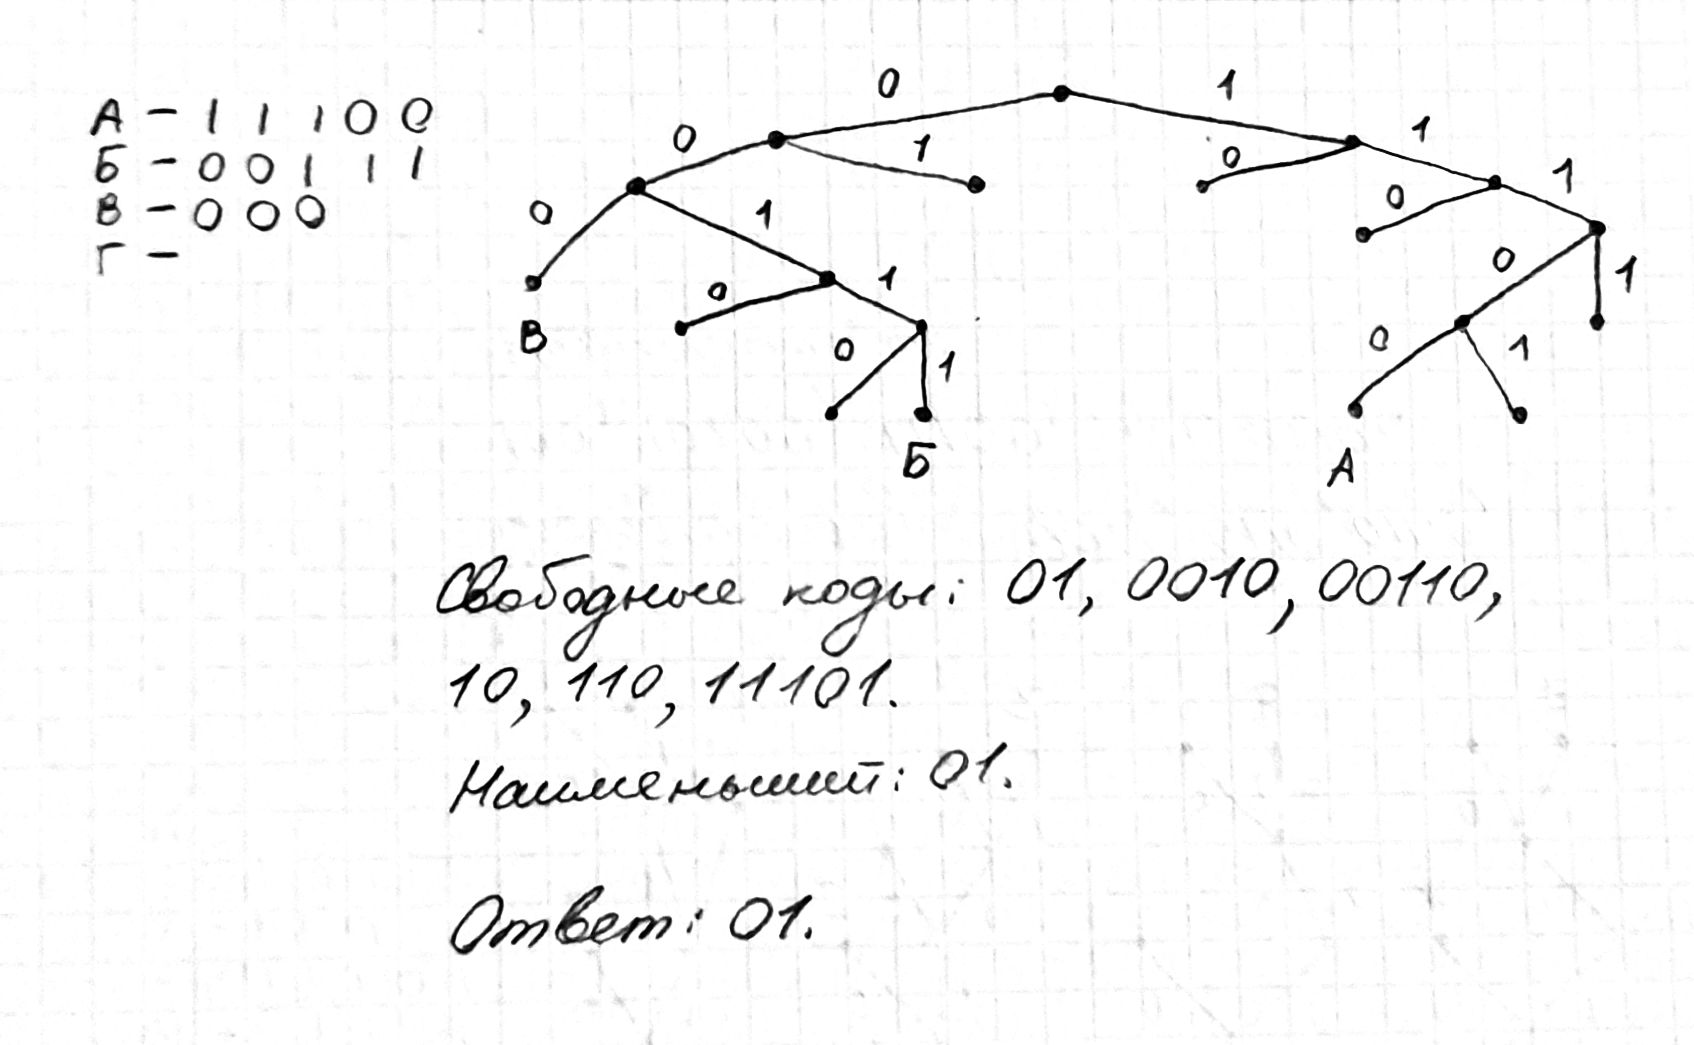 А - 11100
Б - 00111
В - 000
Г -
0 1
0 1 0 1
0 1 0 1
0 1 0 1
В 0 1 0 1
Б А
Свободные коды: 01, 0010, 00110,
10, 110, 11101.
Наименьший: 01.
Ответ: 01.